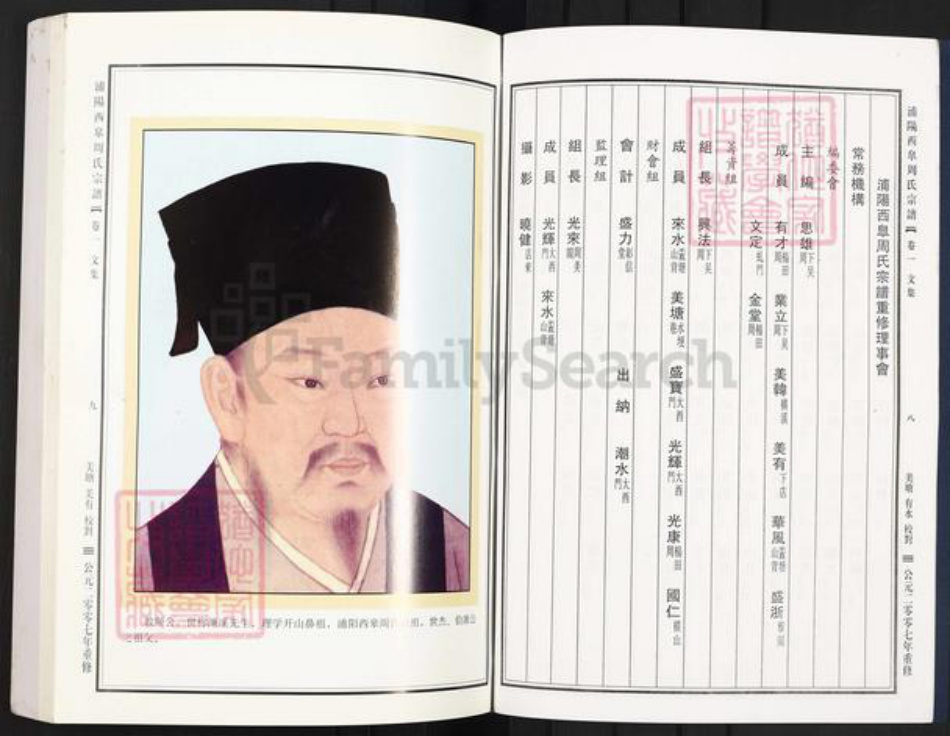 浦陽西皋周氏宗譜 卷一 文集
八
美塘 有水 校對 公元二零零七年重修
浦陽西皋周氏宗譜重修理事會
常務機構
編委會
主編 思雄下吴周
成員 有才楊田周 業立下吴周 美韓橫溪 美有下店 華風 盛浙
文定 金堂楊田周
籌資組
組長 興法下吴周
成員 來水 美塘 盛寶大西門 光輝大西門 光康楊田周 國仁橫山
財會組
會計 盛力 出納 潮水大西門
監理組
組長 光來
成員 光輝大西門 來水
攝影 曉健
FamilySearch
浦陽西皋周氏宗譜 卷一 文集
九
美塘 美有 校對 公元二零零七年重修
理学开山鼻祖,浦阳西皋周
之祖父。